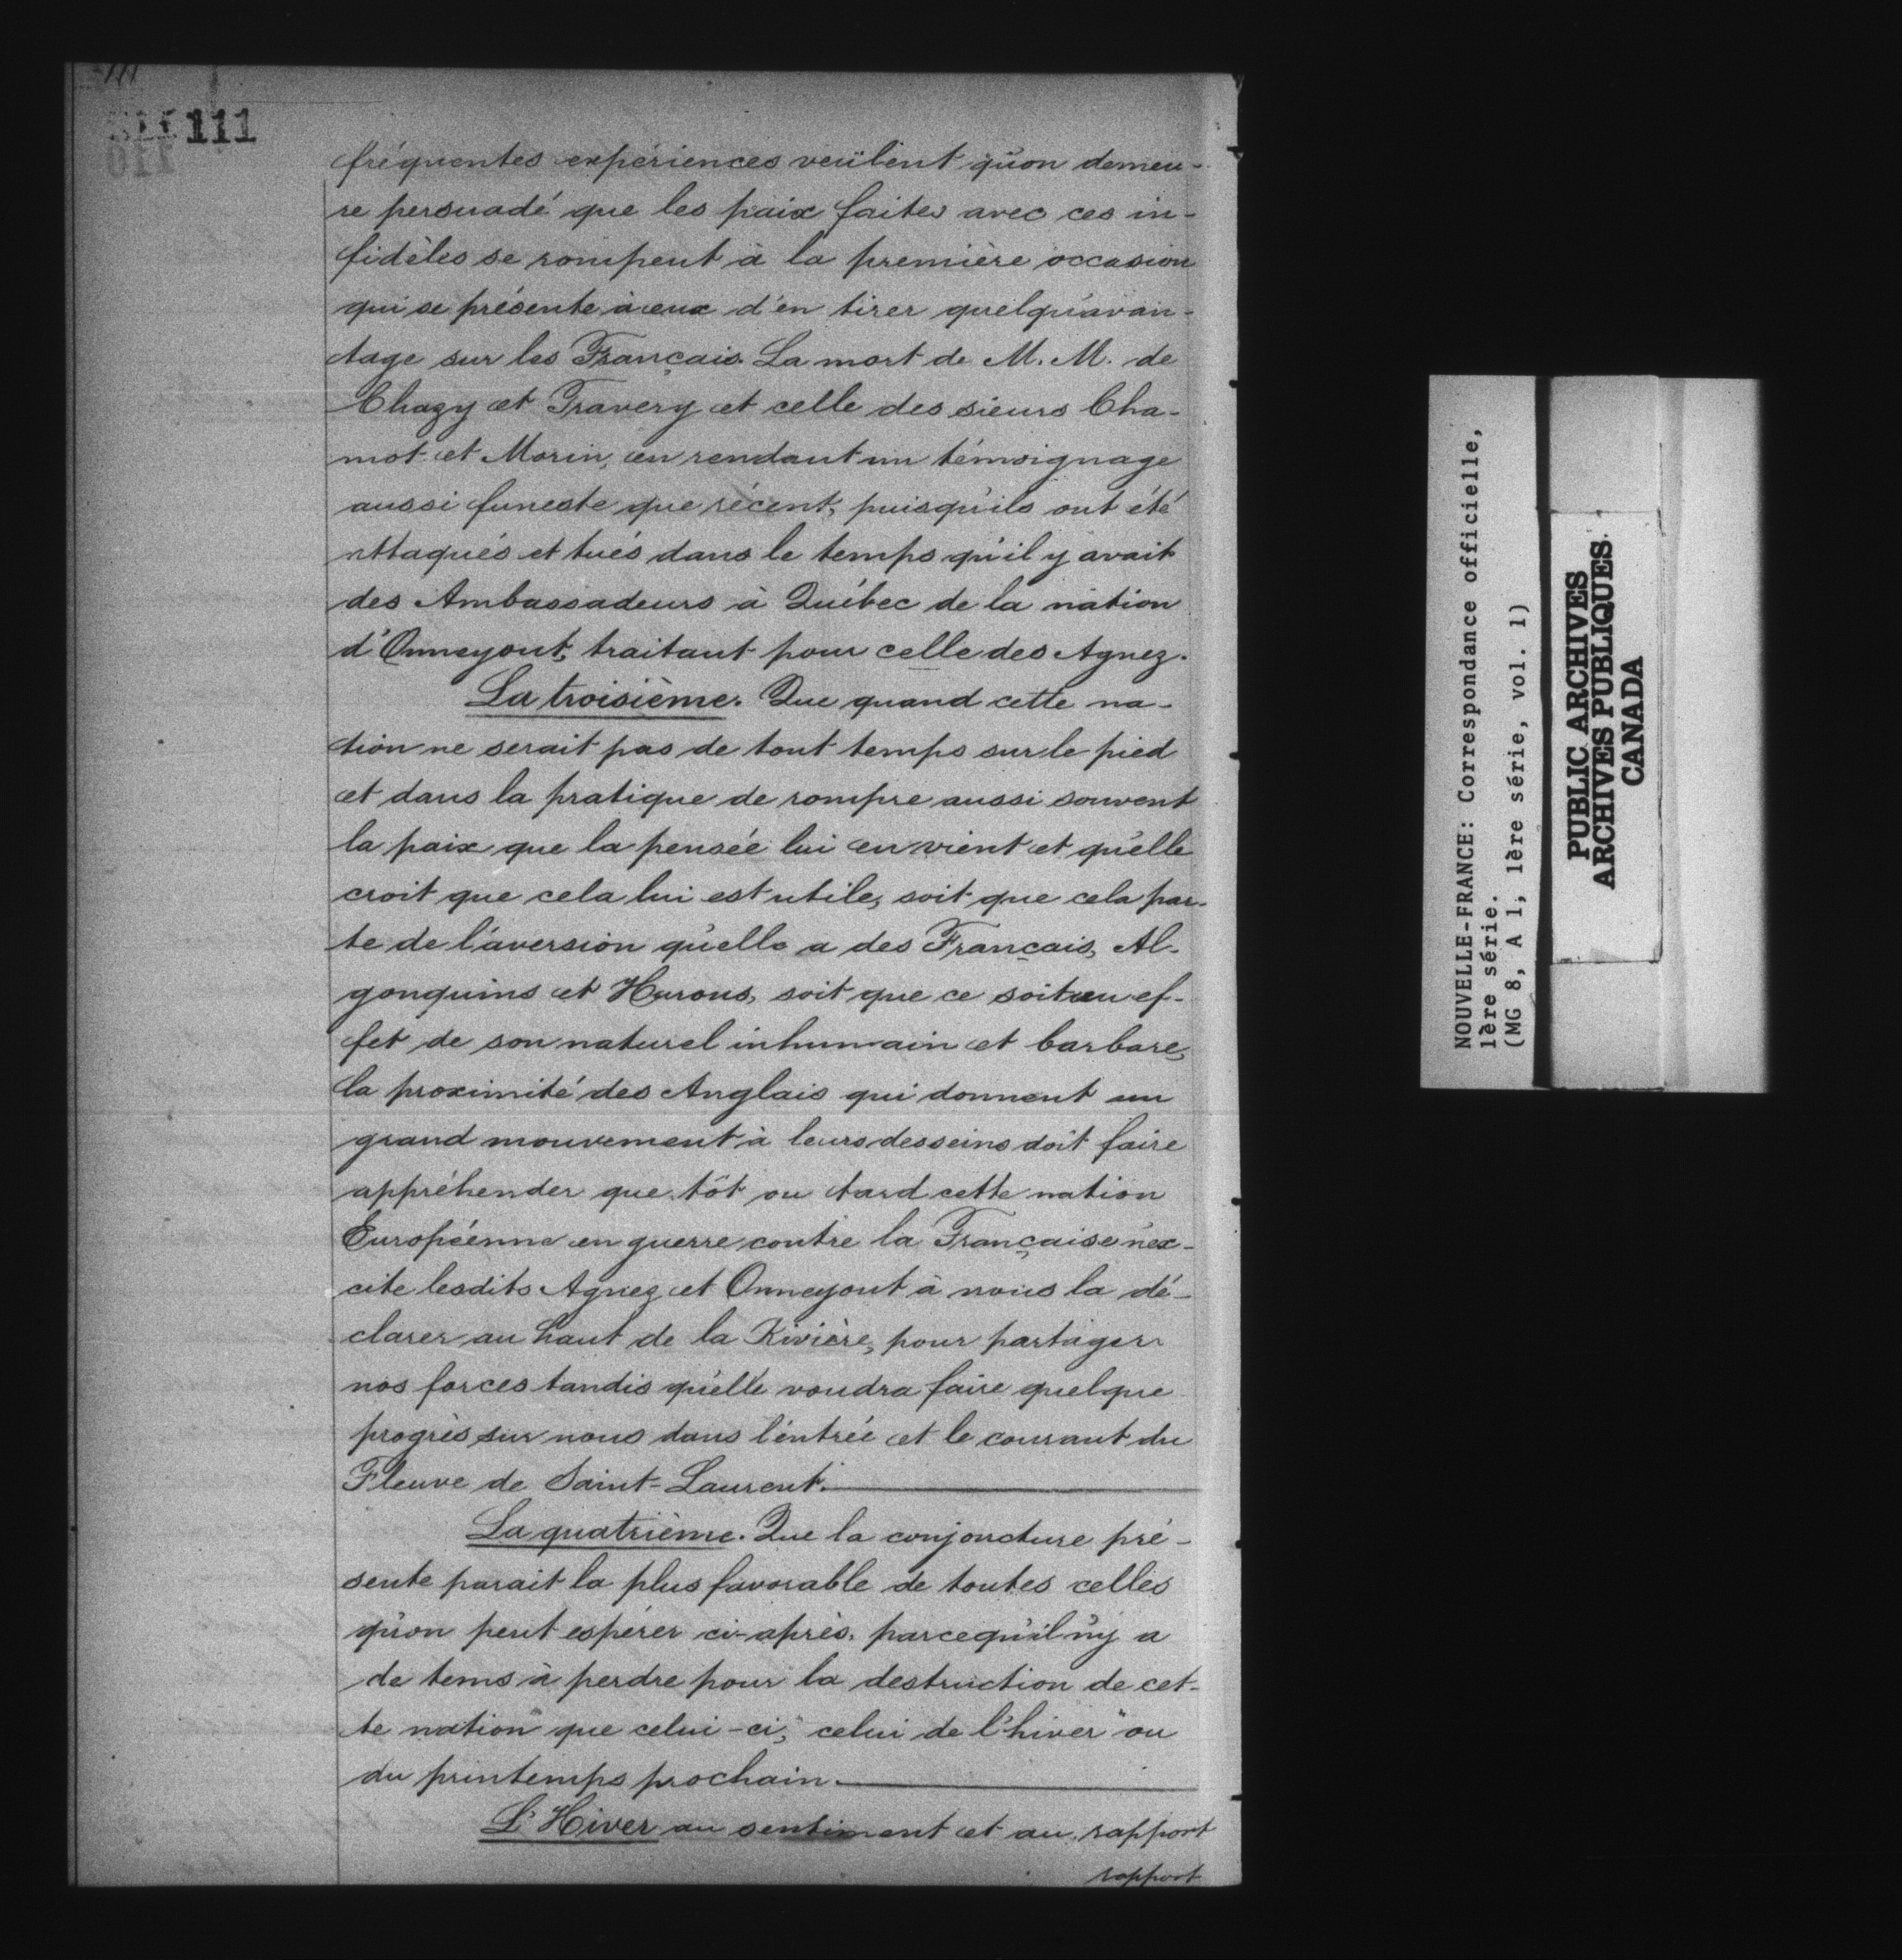 111
111
fréquentes expériences veulent qu'on demeu-
re persuadé que les paix faites avec ces in-
fidèles se rompent à la première occasion
qui se présente à eux d'en tirer quelqu'avan-
tage sur les Français. La mort de M. M. de
Chazy et Travery et celle des sieurs Cha-
mot et Morin, en rendant un témoignage
aussi funeste que récent, puisqu'ils ont été
attaqués et tués dans le temps qu'il y avait
des Ambassadeurs à Québec de la nation
d'Onneyout, traitant pour celle des Agnez.
La troisième. Que quand cette na-
tion ne serait pas de tout temps sur le pied
et dans la pratique de rompre aussi souvent
la paix que la pensée lui en vient et qu'elle
croit que cela lui est utile, soit que cela par-
te de l'aversion qu'elle a des Français, Al-
gonquins et Hurons, soit que ce soit un ef-
fet de son naturel inhumain et barbare,
la proximité des Anglais qui donnent un
grand mouvement à leurs desseins doit faire
appréhender que tôt ou tard cette nation
Européenne en guerre contre la Française n'ex-
cite lesdits Agnez et Onneyout à nous la dé-
clarer au haut de la Rivière, pour partager
nos forces tandis qu'elle voudra faire quelque
progrès sur nous dans l'entrée et le courant du
Fleuve de Saint-Laurent.
La quatrième. Que la conjoncture pré-
sente parait la plus favorable de toutes celles
qu'on peut espérer ci-après, parcequ'il n'y a
de tems à perdre pour la destruction de cet-
te nation que celui-ci, "celui de l'hiver" ou
du printemps prochain.
L'Hiver au sentiment et au rapport
rapport
NOUVELLE-FRANCE: Correspondance officielle,
1ère série.
(MG 8, A 1, 1ère série, vol. 1)
PUBLIC ARCHIVES
ARCHIVES PUBLIQUES
CANADA